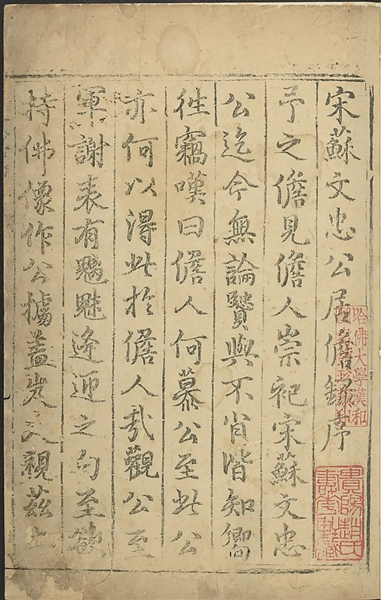 宋蘇文忠公居儋錄序
予之儋見儋人崇祀宋蘇文忠
公迄今無論賢與不肖皆知嚮
徃竊嘆曰儋人何慕公至此公
亦何以得此於儋人哉觀公至
軍謝表有魑魅逢迎之句至欲
持佛像作公據蓋
視茲土
哈佛大學漢和